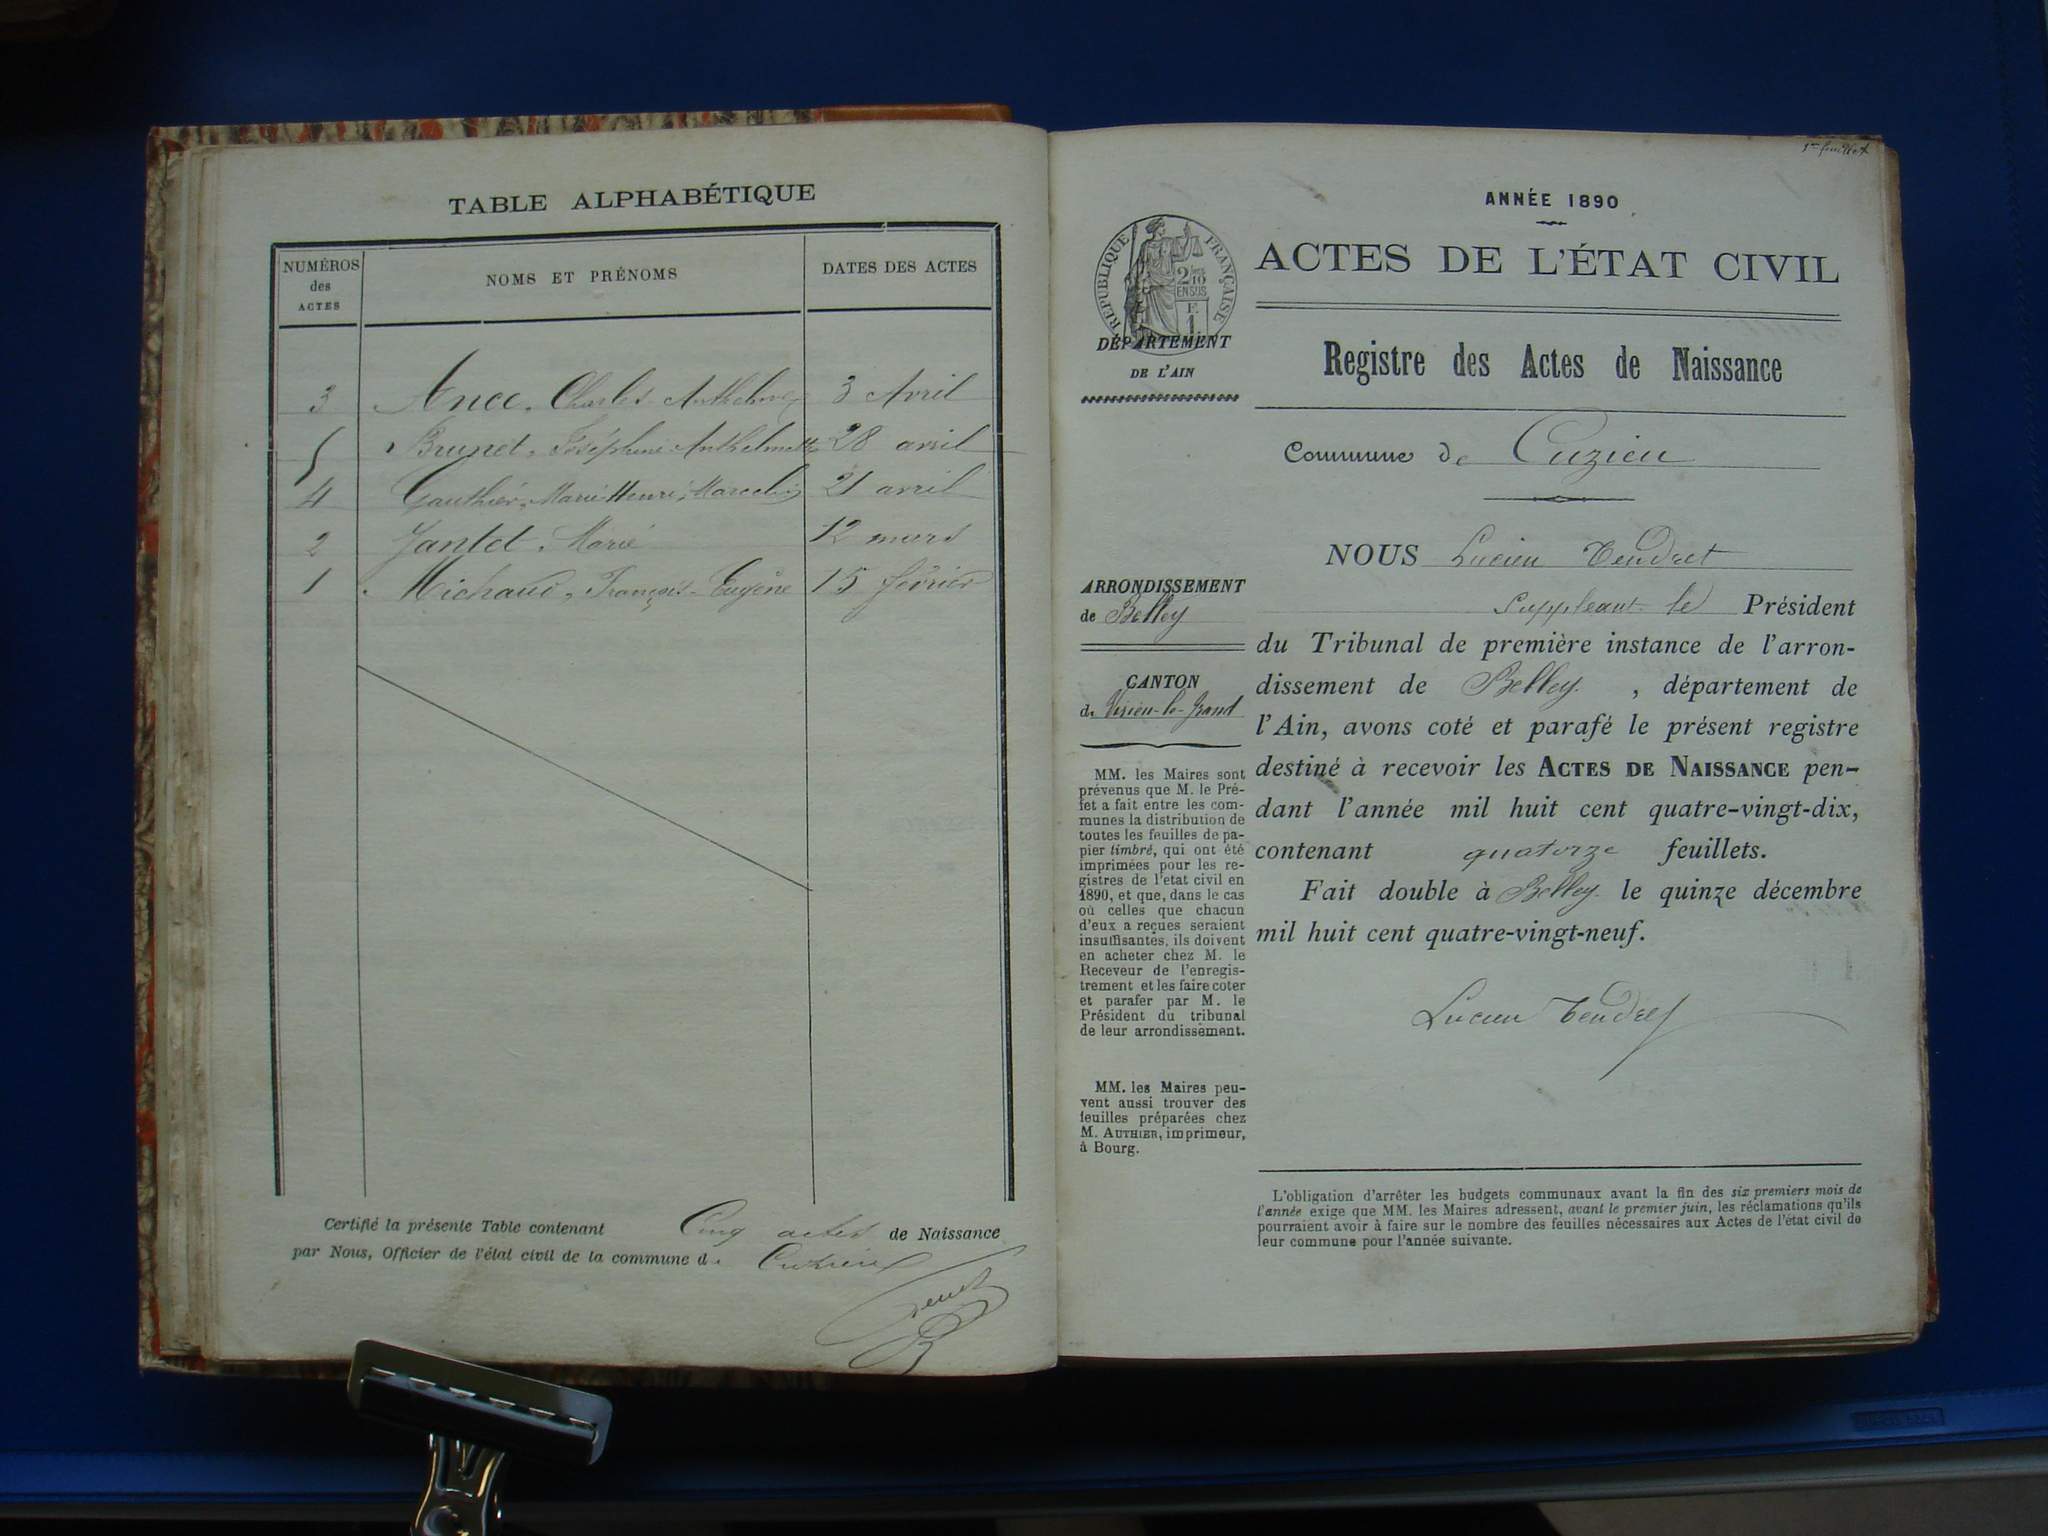 TABLE ALPHABÉTIQUE
NUMÉROS
des
ACTES
NOMS ET PRÉNOMS
DATES DES ACTES
3 Ance, Charles Anthelme 3 Avril
5 Brunet, Joséphine Anthelmette 28 avril
4 Gauthier, Marie Henri, Marcelin 21 avril
2 Jantet, Marie 12 mars
1 Michaud, François-Eugène 15 février
Certifié la présente Table contenant Cinq actes de Naissance
par Nous, Officier de l'état civil de la commune d. Cuzieu
1er feuillet
ANNÉE 1890
RÉPUBLIQUE FRANÇAISE
2/10
EN SUS
F.
1
ACTES DE L'ÉTAT CIVIL
DÉPARTEMENT
DE L'AIN
Registre des Actes de Naissance
Commune de Cuzieu
ARRONDISSEMENT
de Belley
CANTON
de Virieu-le-Grand
MM. les Maires sont
prévenus que M. le Pré-
fet a fait entre les com-
munes la distribution de
toutes les feuilles de pa-
pier timbré, qui ont été
imprimées pour les re-
gistres de l'etat civil en
1890, et que, dans le cas
où celles que chacun
d'eux a reçues seraient
insuffisantes, ils doivent
en acheter chez M. le
Receveur de l'enregis-
trement et les faire coter
et parafer par M. le
Président du tribunal
de leur arrondissement.
MM. les Maires peu-
vent aussi trouver des
feuilles préparées chez
M. AUTHIER, imprimeur,
à Bourg.
NOUS Lucien Tendret
suppléant le Président
du Tribunal de première instance de l'arron-
dissement de Belley, département de
l'Ain, avons coté et parafé le présent registre
destiné à recevoir les ACTES DE NAISSANCE pen-
dant l'année mil huit cent quatre-vingt-dix,
contenant quatorze feuillets.
Fait double à Belley le quinze décembre
mil huit cent quatre-vingt-neuf.
Lucien Tendret
L'obligation d'arrêter les budgets communaux avant la fin des six premiers mois de
l'année exige que MM. les Maires adressent, avant le premier juin, les réclamations qu'ils
pourraient avoir à faire sur le nombre des feuilles nécessaires aux Actes de l'état civil de
leur commune pour l'année suivante.